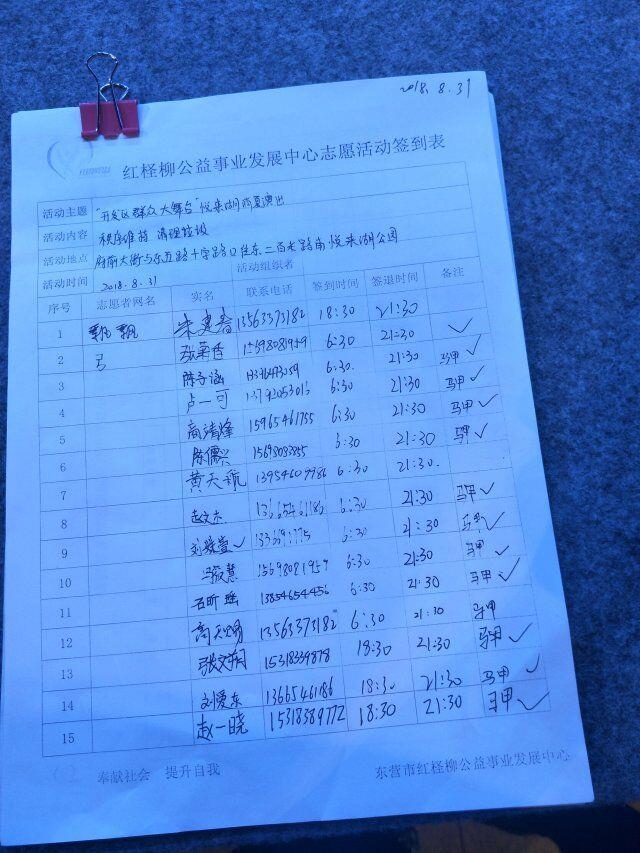 2018.8.31
红柽柳公益事业发展中心志愿活动签到表
活动主题 "开发区群众大舞台"悦来湖消夏演出
活动内容 秩序维持 清理垃圾
活动地点 府前大街与东五路十字路口往东二百米路南悦来湖公园
活动时间 2018.8.31 活动组织者
序号 志愿者网名 实名 联系电话 签到时间 签退时间 备注
1 飘飘 13563373182 18:30 21:30
2 张菊香 15698081959 6:30 21:30 ✓
3 陈子涵 6:30. 21:30 马甲 ✓
4 卢一可 13792053016 6:30 21:30 马甲 ✓
5 高清烽 15965461755 6:30 21:30 马甲 ✓
6 陈儒兴 15698083855 6:30 21:30 马甲 ✓
7 黄天毓 13954607986 6:30 21:30.
8 赵文杰 13665461186 6:30 21:30 马甲 ✓
9 ✓ 6:30 21:30 马甲 ✓
10 15698081959 6:30 21:30 马甲 ✓
11 石昕瑶 13854654456 6:30 21:30 马甲 ✓
12 13563373182 6:30 21:30 马甲
13 张文朔 15318334878 18:30 21:30 马甲 ✓
14 刘爱东 1366546186 18:30 21:30 马甲 ✓
15 赵一晓 15318389772 18:30 21:30 马甲 ✓
奉献社会 提升自我 东营市红柽柳公益事业发展中心